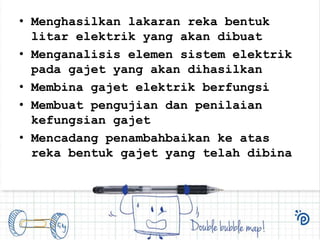 • Menghasilkan lakaran reka bentuk
litar elektrik yang akan dibuat
• Menganalisis elemen sistem elektrik
pada gajet yang akan dihasilkan
• Membina gajet elektrik berfungsi
• Membuat pengujian dan penilaian
kefungsian gajet
• Mencadang penambahbaikan ke atas
reka bentuk gajet yang telah dibina
Double bubble map!